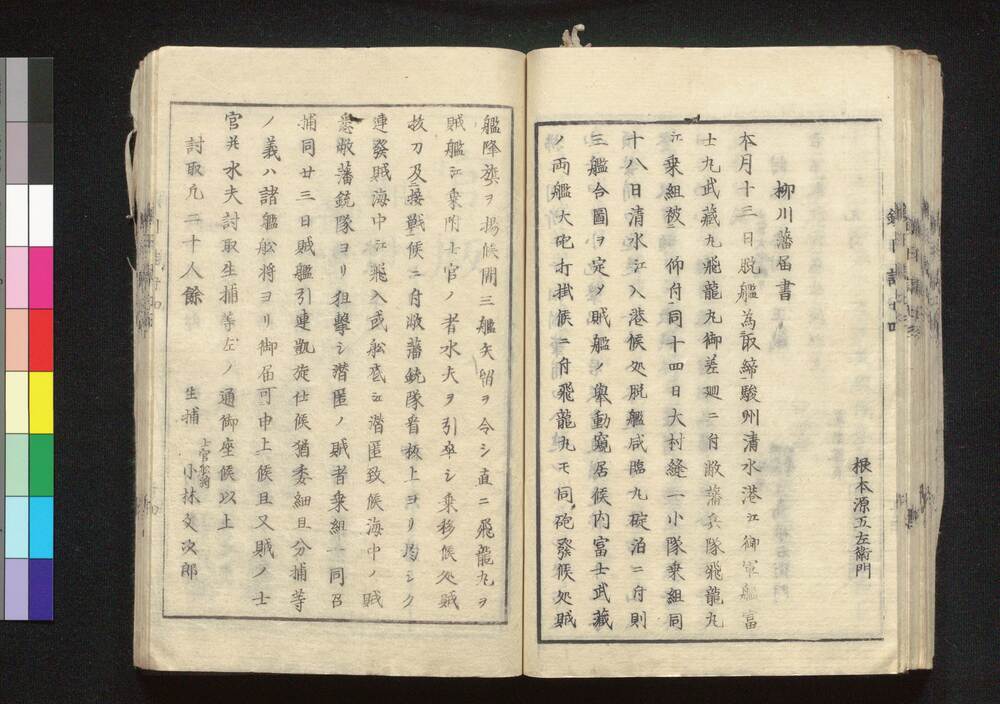 根本源五左衛門
柳川藩届書
本月十三日脱艦為取締駿州清水港江御軍艦富
士丸武藏丸飛龍丸御差廻ニ付敝藩兵隊飛龍丸
江乗組被　仰付同十四日大村縫一小隊乗組同
十八日清水江入港候処脱艦咸臨丸碇泊ニ付則
三艦合圖ヲ定メ賊艦ノ舉動窺居候内富士武藏
ノ両艦大砲打掛候ニ付飛龍丸モ同砲發候処賊
艦降旗ヲ揚候間三艦矢留ヲ令シ直ニ飛龍丸ヲ
賊艦江乗附士官ノ者水夫ヲ引卒シ乗移候処賊
抜刀及接戦候ニ付敝藩銃隊看板上ヨリ
連發賊海中江飛入或舩底江潜匿致候海中ノ賊
悉敝藩銃隊ヨリ狙撃シ潜匿ノ賊者乗組一同召
捕同廿三日賊艦引連凱旋仕候猶委細且分捕等
ノ義ハ諸艦舩将ヨリ御届可申上候且又賊ノ士
官并水夫討取生捕等左ノ通御座候以上
討取凡二十人餘
生捕
小林文次郎